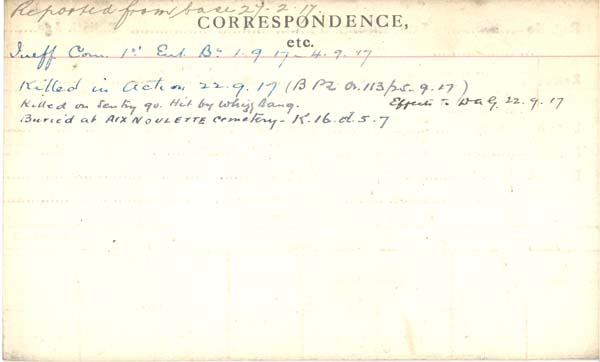 Reported from base 27.2.17.
CORRESPONDENCE,
etc.
Ineff. Com. 1st Ent. Bn 1.9.17 - 4.9.17
Killed in Action 22.9.17 (B P2 O. 113/25-9.17)
Killed on Sentry go. Hit by Whizz Bang. Effects to D a G. 22.9.17
Buried at AIX NOULETTE Cemetery - K.16.d.5.7